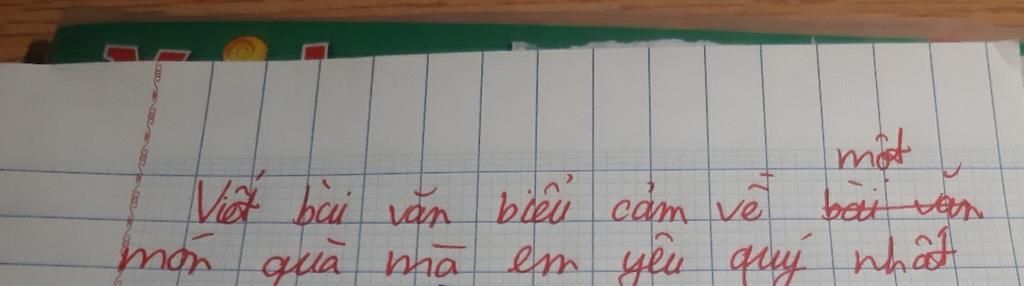 một
Viết bài văn biểu cảm về bài văn
món quà mà em yêu quý nhất